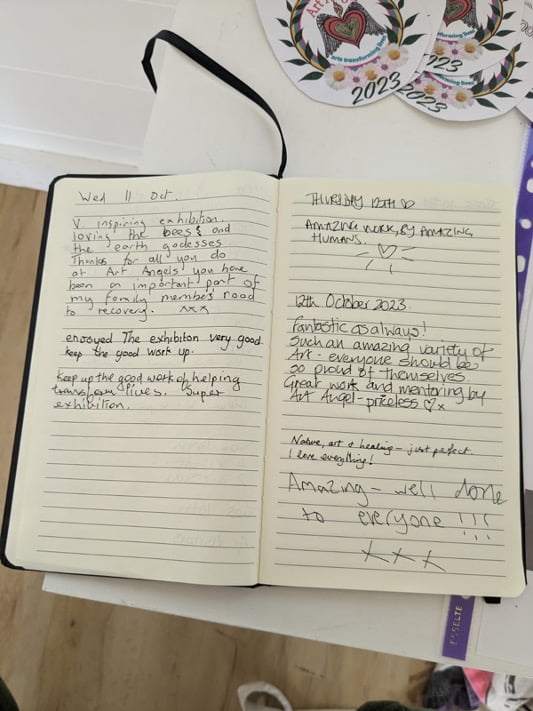 Art
arts transforming lives
2023
transforming lives
2023
transforming lives
2023
Wed 11 Oct.
V inspiring exhibition.
loving the bees & and
the earth godesses.
Thanks for all you do
at Art Angels you have
been an important part of
my family members road
to recovery. xxx
enjoyed The exhibiton very good.
keep the good work up.
Keep up the good work of helping
transform lives. Super
exhibition.
THURSDAY 12TH
AMAZING WORK, BY AMAZING
HUMANS.
12th October 2023.
Fantastic as always!
Such an amazing variety of
Art - everyone should be
so proud of themselves.
Great work and mentoring by
Art Angel - priceless ♡x
Nature, art & healing - just perfect.
I love everything!
Amazing - well done
to everyone !!!
x x x
ESSELTE